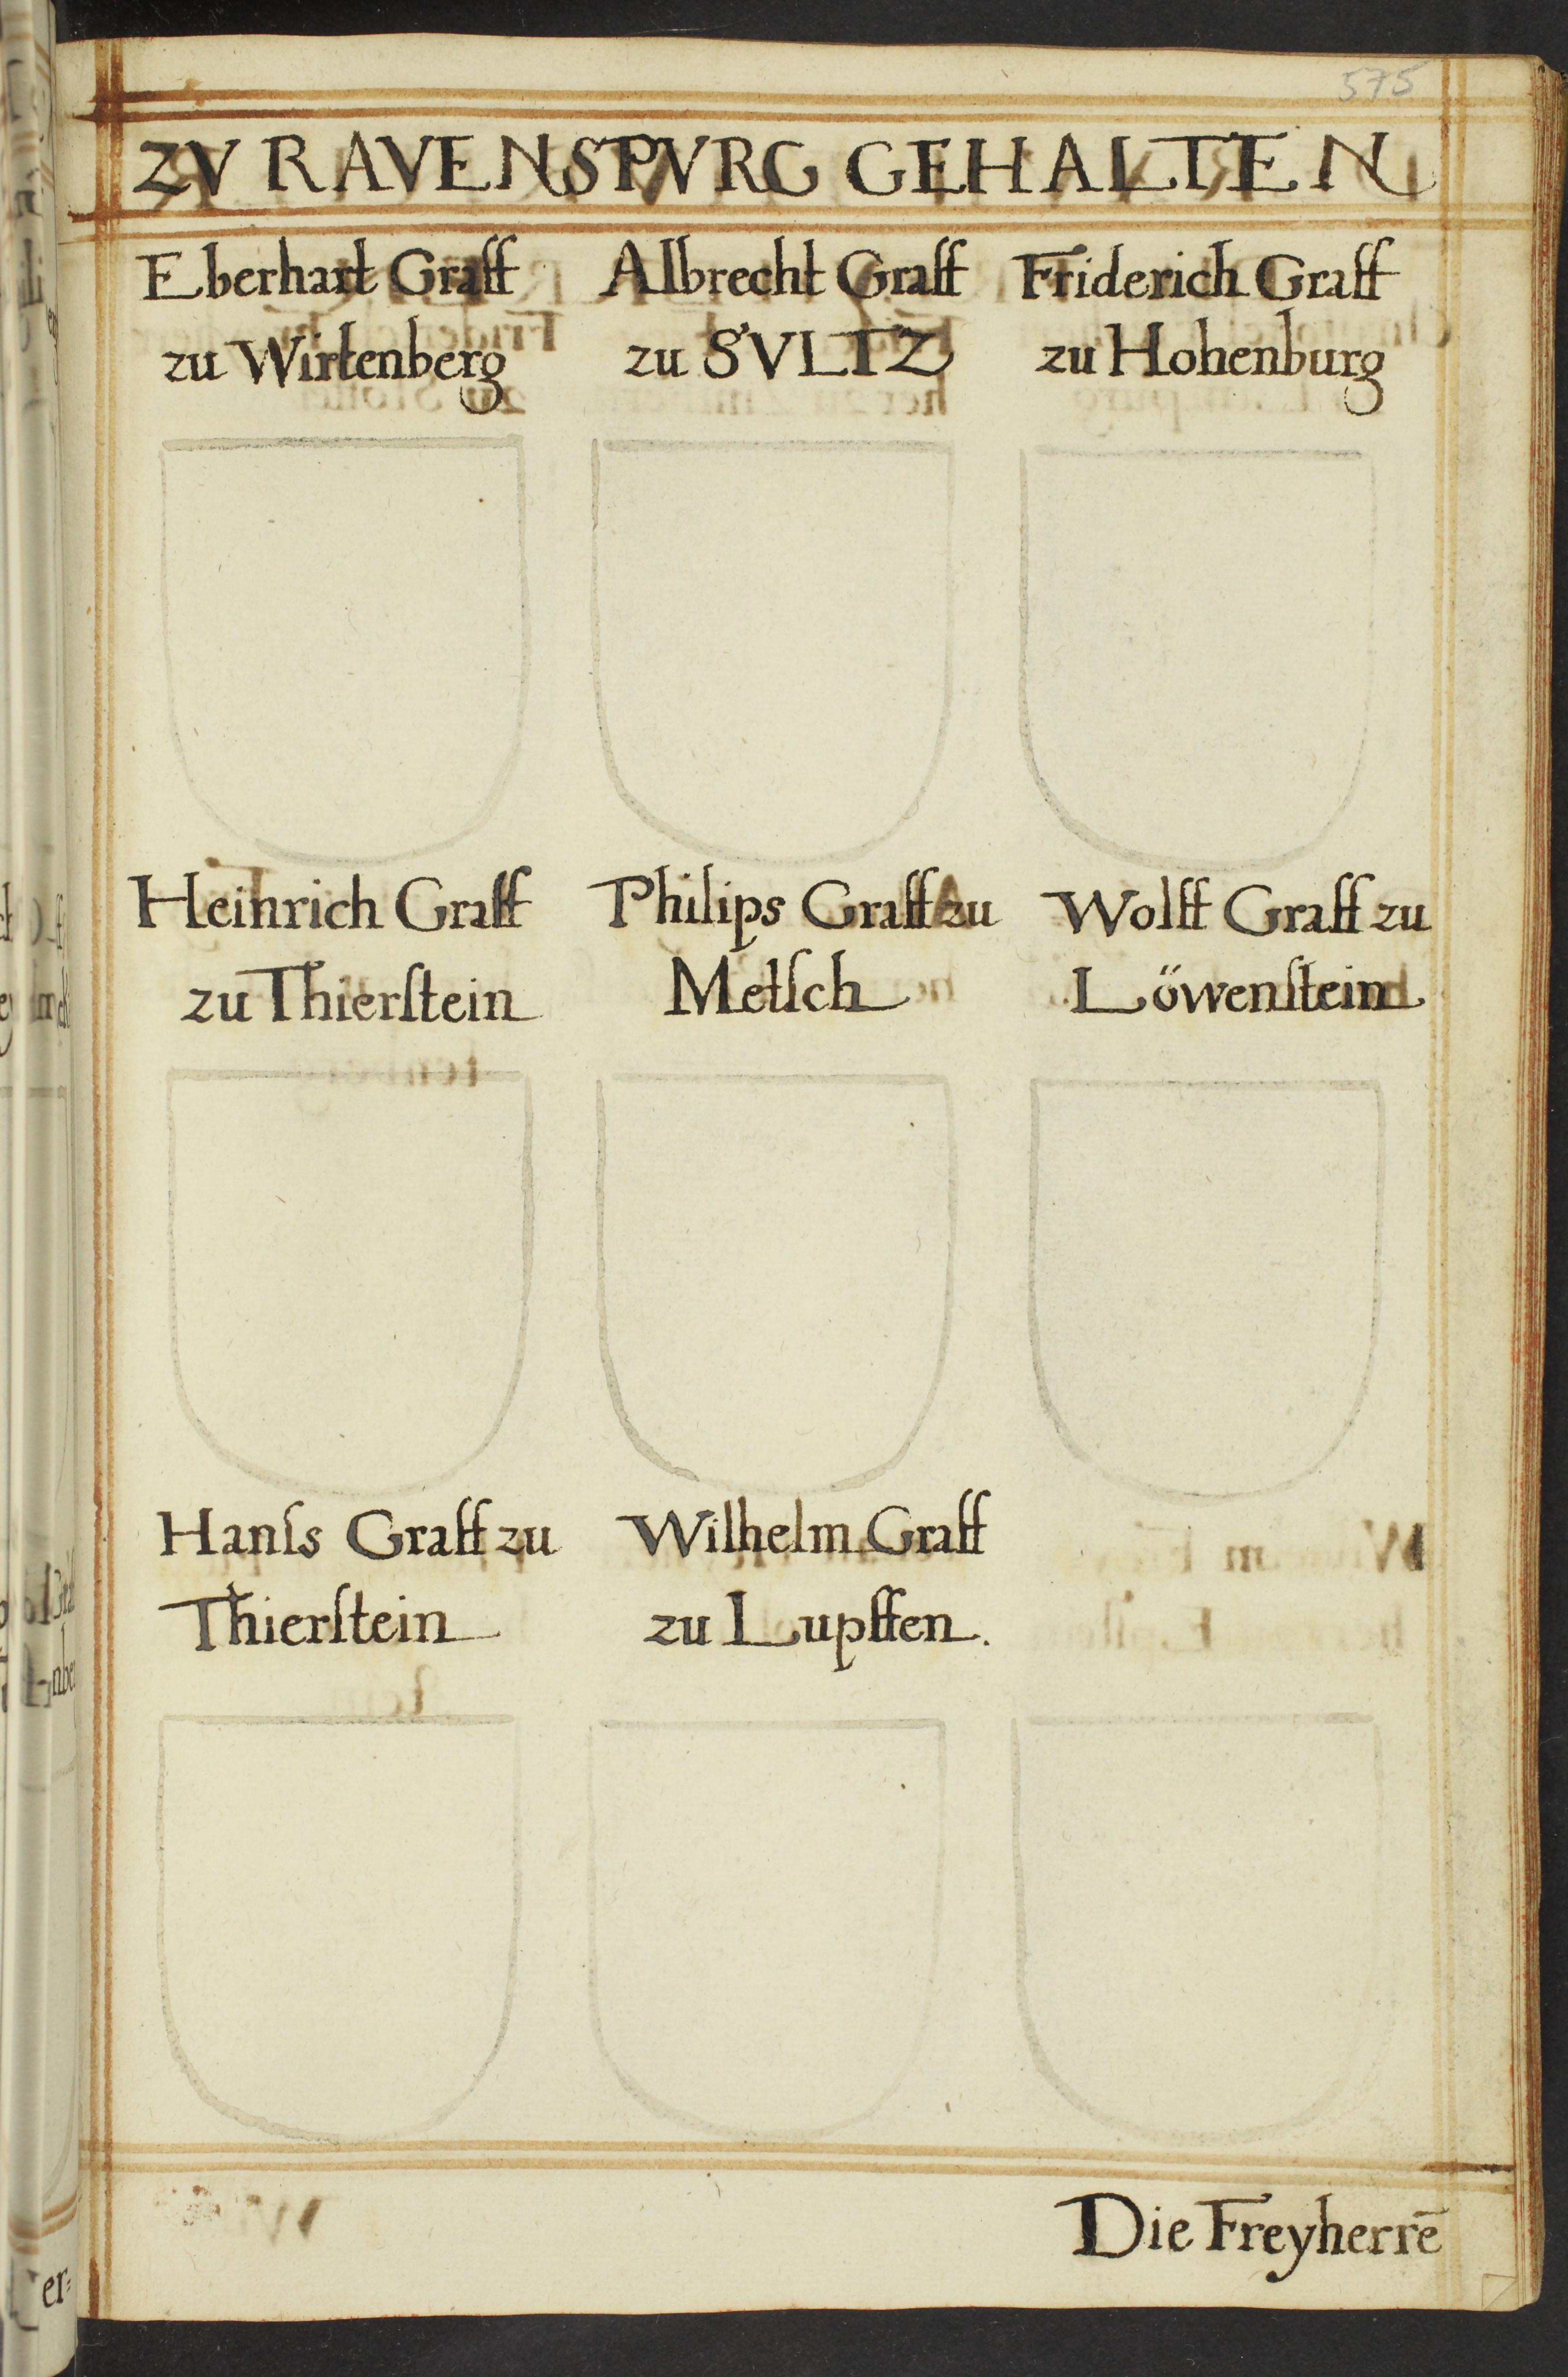 575
ZV RAVENSPVRG GEHALTEN
Eberhart Graff
zu Wirtenberg
Albrecht Graff
zu SVLTZ
Friderich Graff
zu Hohenburg
Heinrich Graff
zu Thierſtein
Philips Graff zu
Metſch
Wolff Graff zu
Löwenſtein
Hanſs Graff zu
Thierſtein
Wilhelm Graff
zu Lupffen.
Die Freyherrē
er=